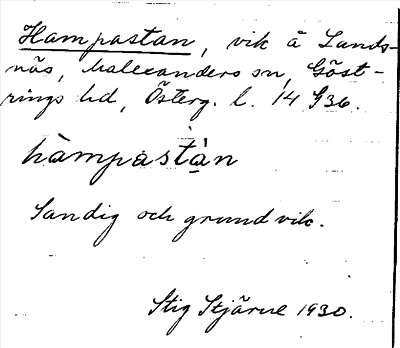 Hampastan, vik å Lands-
näs, Malexanders sn, Göst-
rings hd, Österg. l. 14 G36.
hàmpastàn
Sandig och grund vik.
Stig Stjärne 1930.